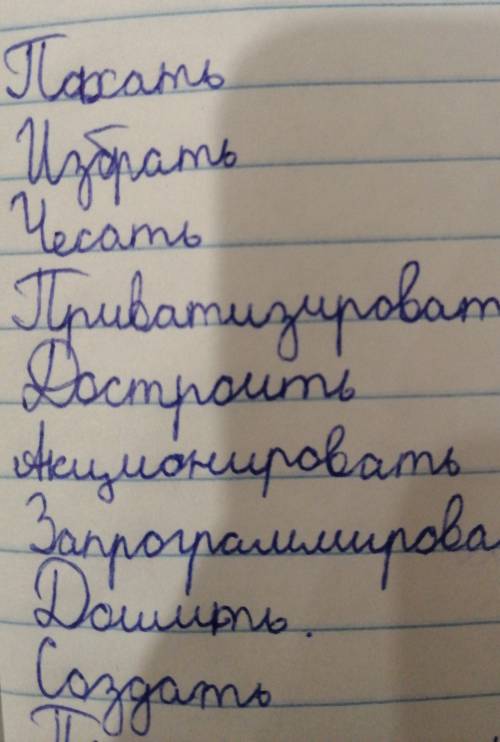 Пахать
Избрать
Чесать
Приватизироват
Достроить
Акционировать
Запрограммирова
Дошить.
Создать